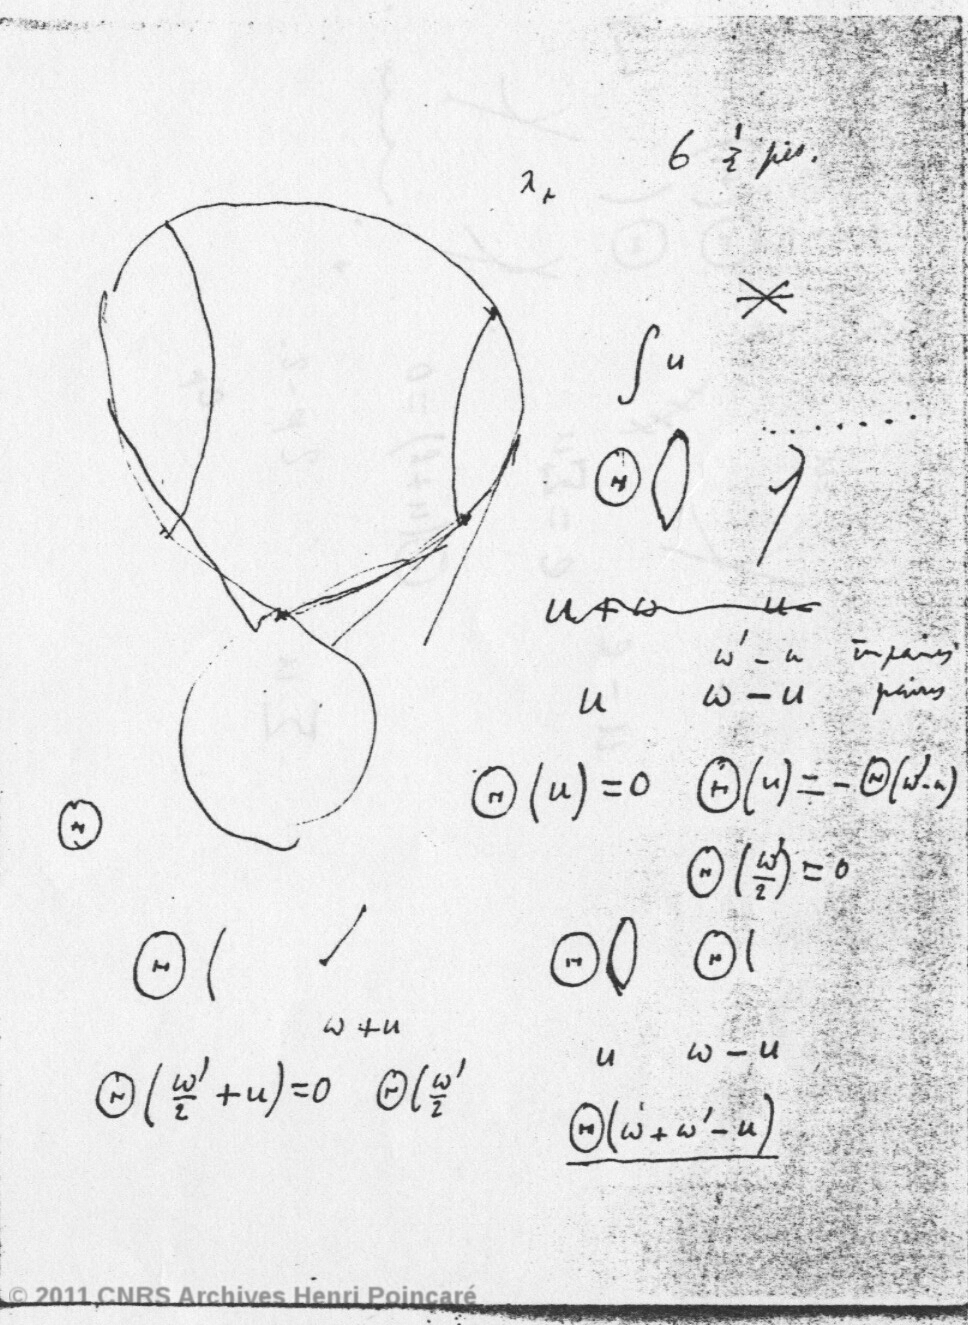 6 1/2
λ
∫ u
Θ (
u + ω u
ω' - u impaires
u ω - u paires
Θ (u) = 0 Θ (u) = - Θ (ω' - u)
Θ
Θ (ω'/2) = 0
Θ ( Θ ( Θ (
ω + u
u ω - u
Θ (ω'/2 + u) = 0 Θ (ω'/2
Θ (ω + ω' - u)
© 2011 CNRS Archives Henri Poincaré